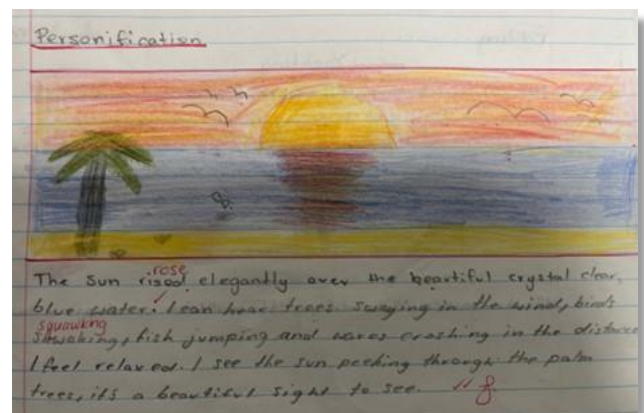 Personification
rose
The sun rised elegantly over the beautiful crystal clear,
blue water. I can hear trees swaying in the wind, birds
squawking
swaking, fish jumping and waves crashing in the distance
I feel relaxed. I see the sun peeking through the palm
trees, it's a beautiful sight to see.